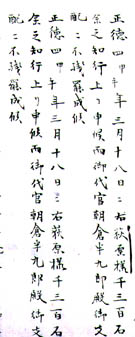 正徳四甲午年三月十八日ニ右萩原様千三百石
余之知行上り申候而御代官朝倉半九郎殿御支
配ニ不残罷成候
正徳四甲午年三月十八日ニ右萩原様千三百石
余之知行上り申候而御代官朝倉半九郎殿御支
配ニ不残罷成候